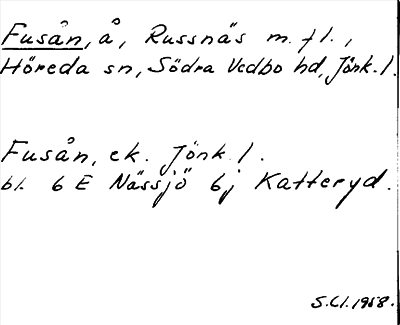 Fusån, å, Russnäs m. fl.,
Höreda sn, Södra Vedbo hd, Jönk. l.
Fusån, ek. Jönk. l.
bl. 6 E Nässjö 6j Katteryd.
S.Cl. 1958.